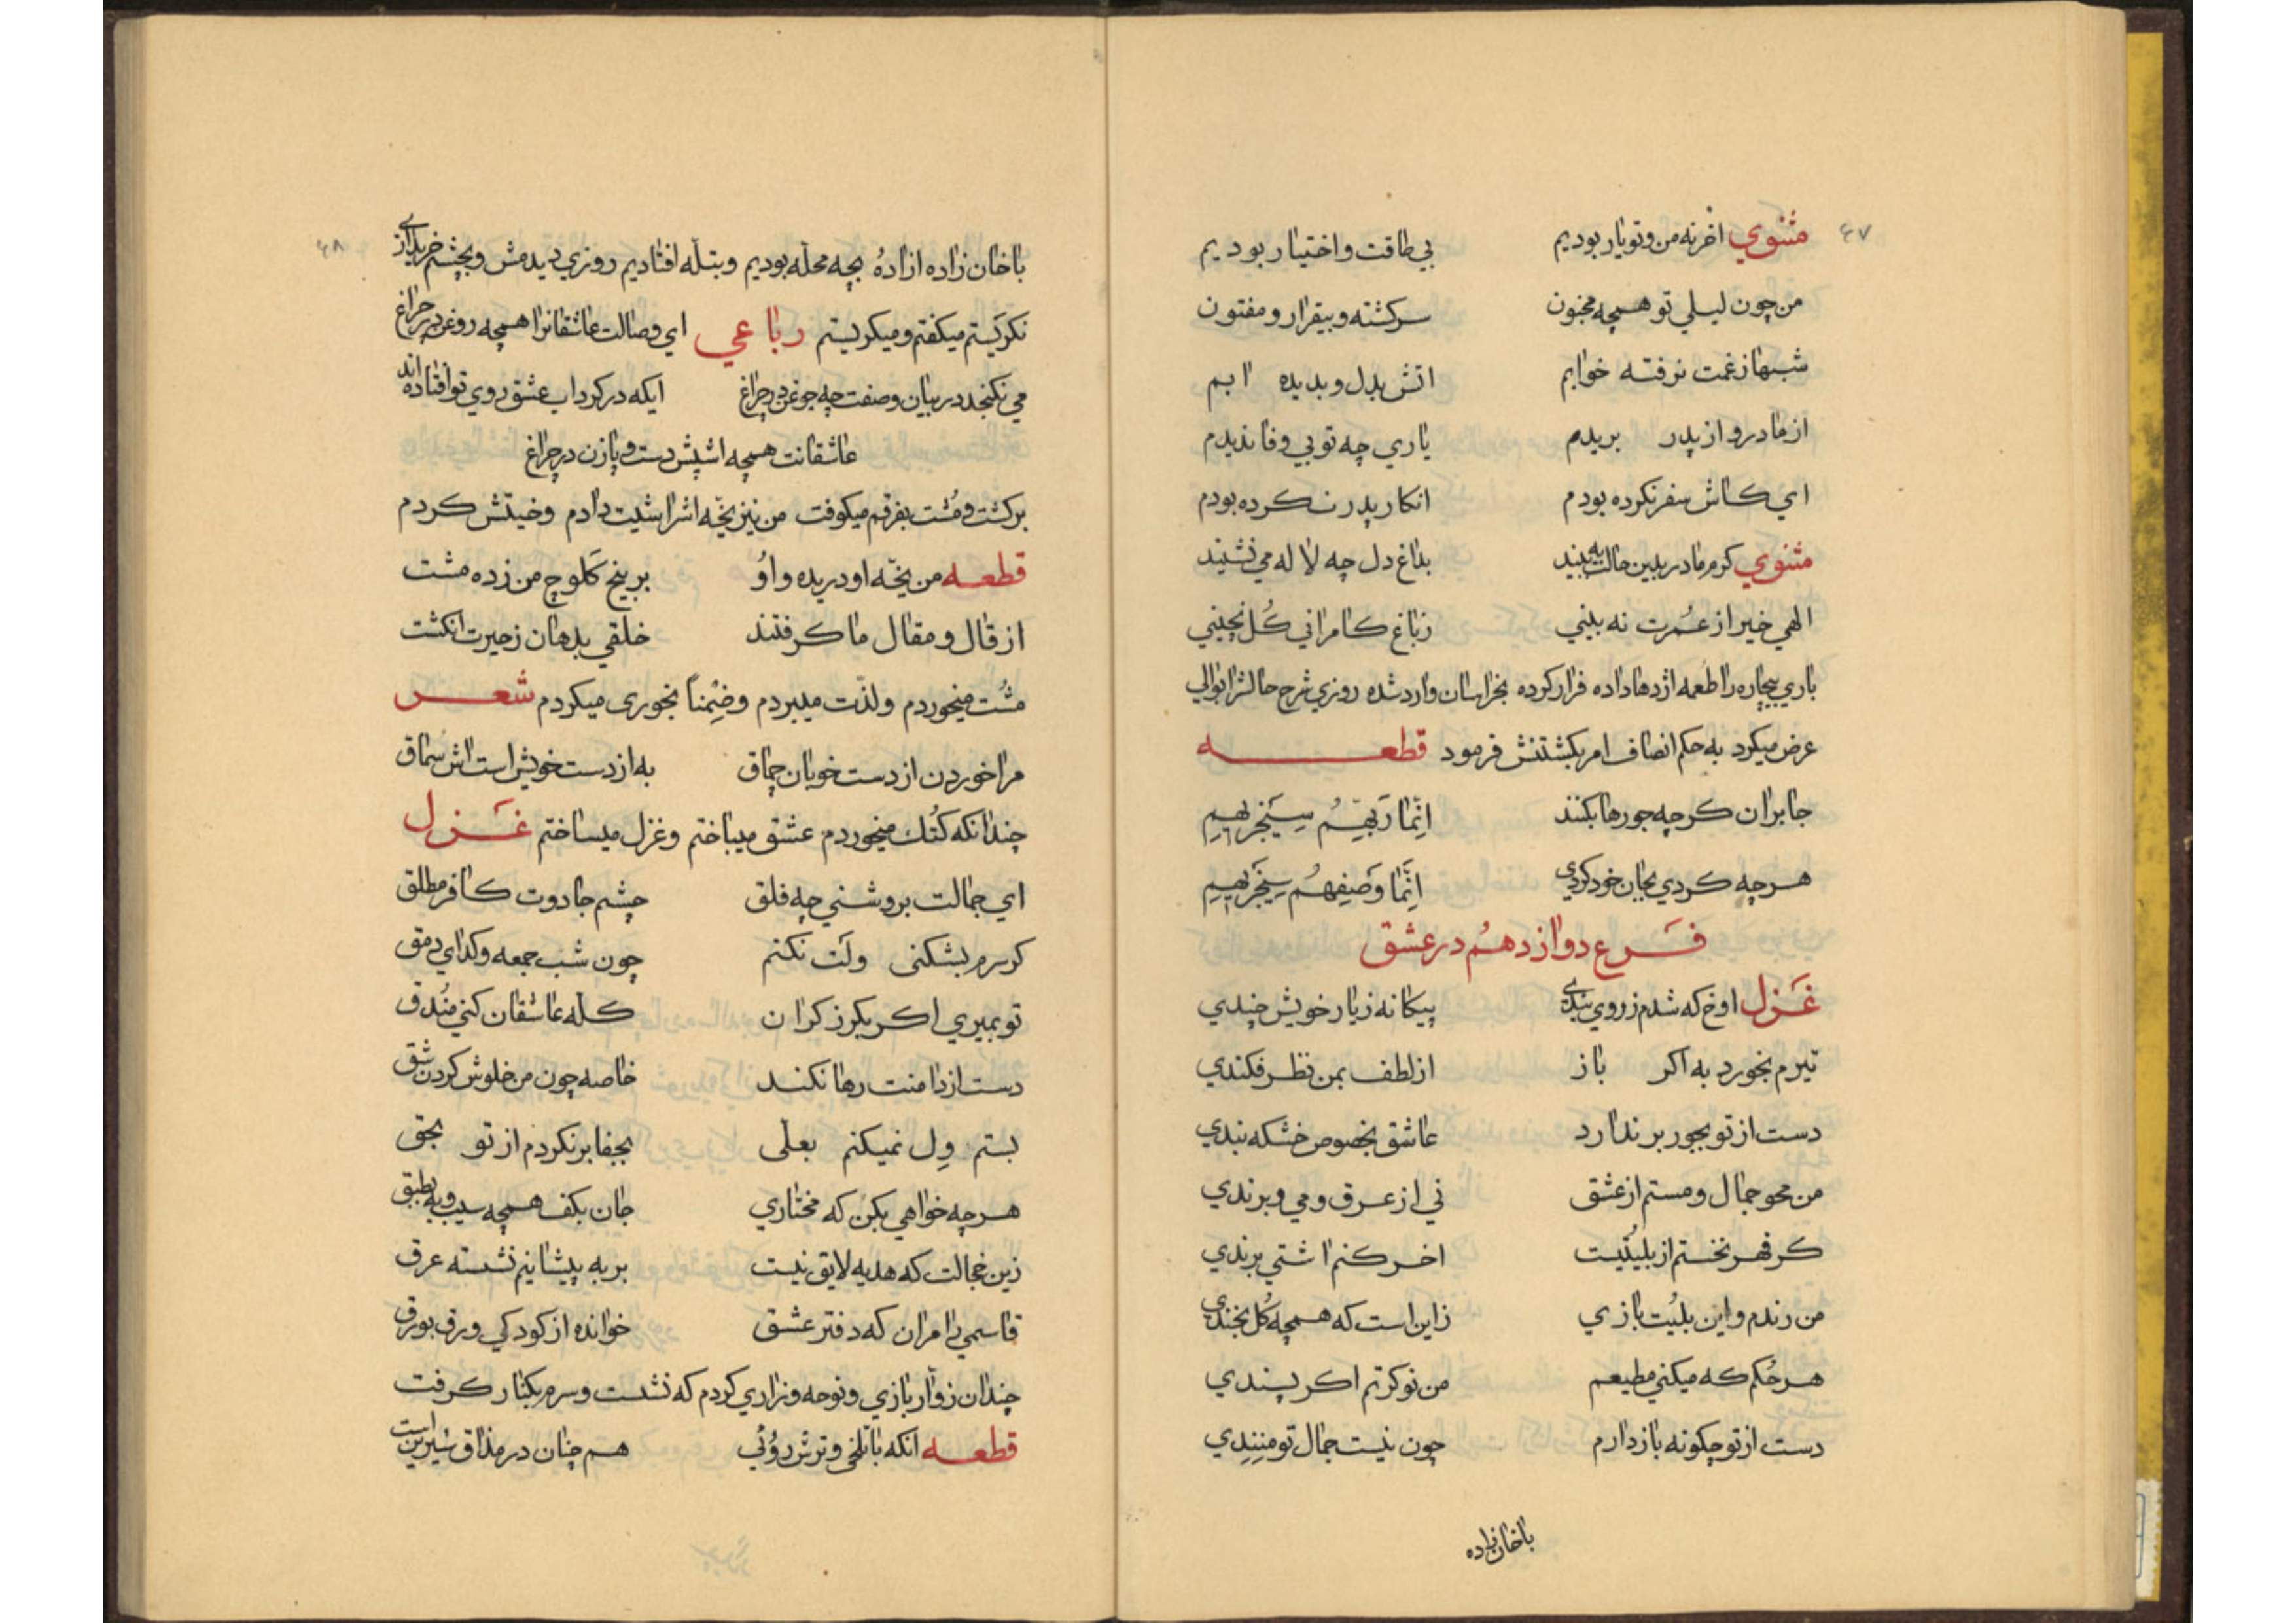 ۴۷
مثنوي اخر نه من و تو یار بودیم بي طاقت و اختیار بودیم
من چون لیلي تو همچه مجنون سرکشته و بیقرار و مفتون
شبها ز غمت نرفته خوابم اتش بدل و بدیده ابم
از مادر و از پدر بریدم یاري چه تو بي وفا ندیدم
اي کاش سفر نکرده بودم انکار پدر نکرده بودم
مثنوي کرم مادر بدین حالت به بیند بداغ دل چه لاله مي نشیند
الهي خیر از عمرت نه بیني ز باغ کامراني کُل نچیني
باري بیچاره را طعمه اژدها داده فرار کرده بخراسان وارد شده روزي شرح حالش را بوالي
عرض میکرد به حکم انصاف امر بکشتنش فرمود قطعه
جابران کرچه جورها بکنند اِنّما رَبهِم سیَنجَر بهِم
هرچه کردي بجان خود کردي اِنَّما وَصیفهُم سینجَر بهِم
فَرع دوازدهُم در عشق
غَزل اوخ که شدم ز روي بندي بیکانه ز یار خویش چندي
تیرم بخورد به اکر باز از لطف بمن نظر فکندي
دست از تو بجور بر ندارد عاشق بخصوص خشکه بندي
من محو جمال و مستم از عشق ني از عرق و مي و برندي
کر قهر نخستم از بلیتیست اخر کنم اشتي برندي
من رندم و این بلیُت بازي زاین است که همچه کُل بخندي
هر حُکم که میکني مطیعم من نوکرتم اکر پسندي
دست از تو چکونه باز دارم چون نیست جمال تو مِنِندِي
با خان زاده
۴۸
با خان زاده ازادهُ بچه محله بودیم و بتلّه افتادیم روزي دیدمش و بچشم خریداري از
نکرَیستم میکفتم و میکریستم رباعي اي وصالت عاشقانرا همچه روغن در چراغ
مي نکنجد در بیان وصفت چه جوغن در چراغ ایکه در کرداب عشق روي تو افتاده اند
عاشقانت همچه اشپش دست و پا زن در چراغ
برکشت و مُشت بفرقم میکوفت من نیز یخّه اش را شلیت دادم و خیتش کردم
قطعه من یخّه او دریده و اوُ بر بیخ کَلوچ من زده مشت
از قال و مقال ما کرفتند خلقي بدهان ز حیرت انکشت
مُشت میخوردم و لذّت میبردم و ضِمناً بخوری میکردم شعر
مرا خوردن از دست خوبان چماق به از دست خویش است اش سماق
چندانکه کُتُك میخوردم عشق میباختم و غزل میساختم غَزل
اي جمالت بروشني چه فلق چشم جادوت کافر مطلق
کر سرم بشکنی ولَت نکنم چون شب جمعه و کداي دمق
تو بمیري اکر بکرز کران کله عاشقان کني مُندق
دست از دامنت رها نکند خاصه چون من خلوش کردن شق
بستم وِل نمیکنم بعلّی بجفا بر نکردم از تو بحق
هرچه خواهي بکن که مختاري جان بکف همچه سیب و به بطبق
زین خجالت که هدیه لایق نیست بر به پیشانیم نشسته عرق
قاسمي را مران که دفتر عشق خوانده از کودکي ورق بورق
چندان زوّار بازي و نوحه و زاري کردم که نشست و سرم بکنار کرفت
قطعه انکه با تلخی و ترش روُئي هم چنان در مذاق شیرین است